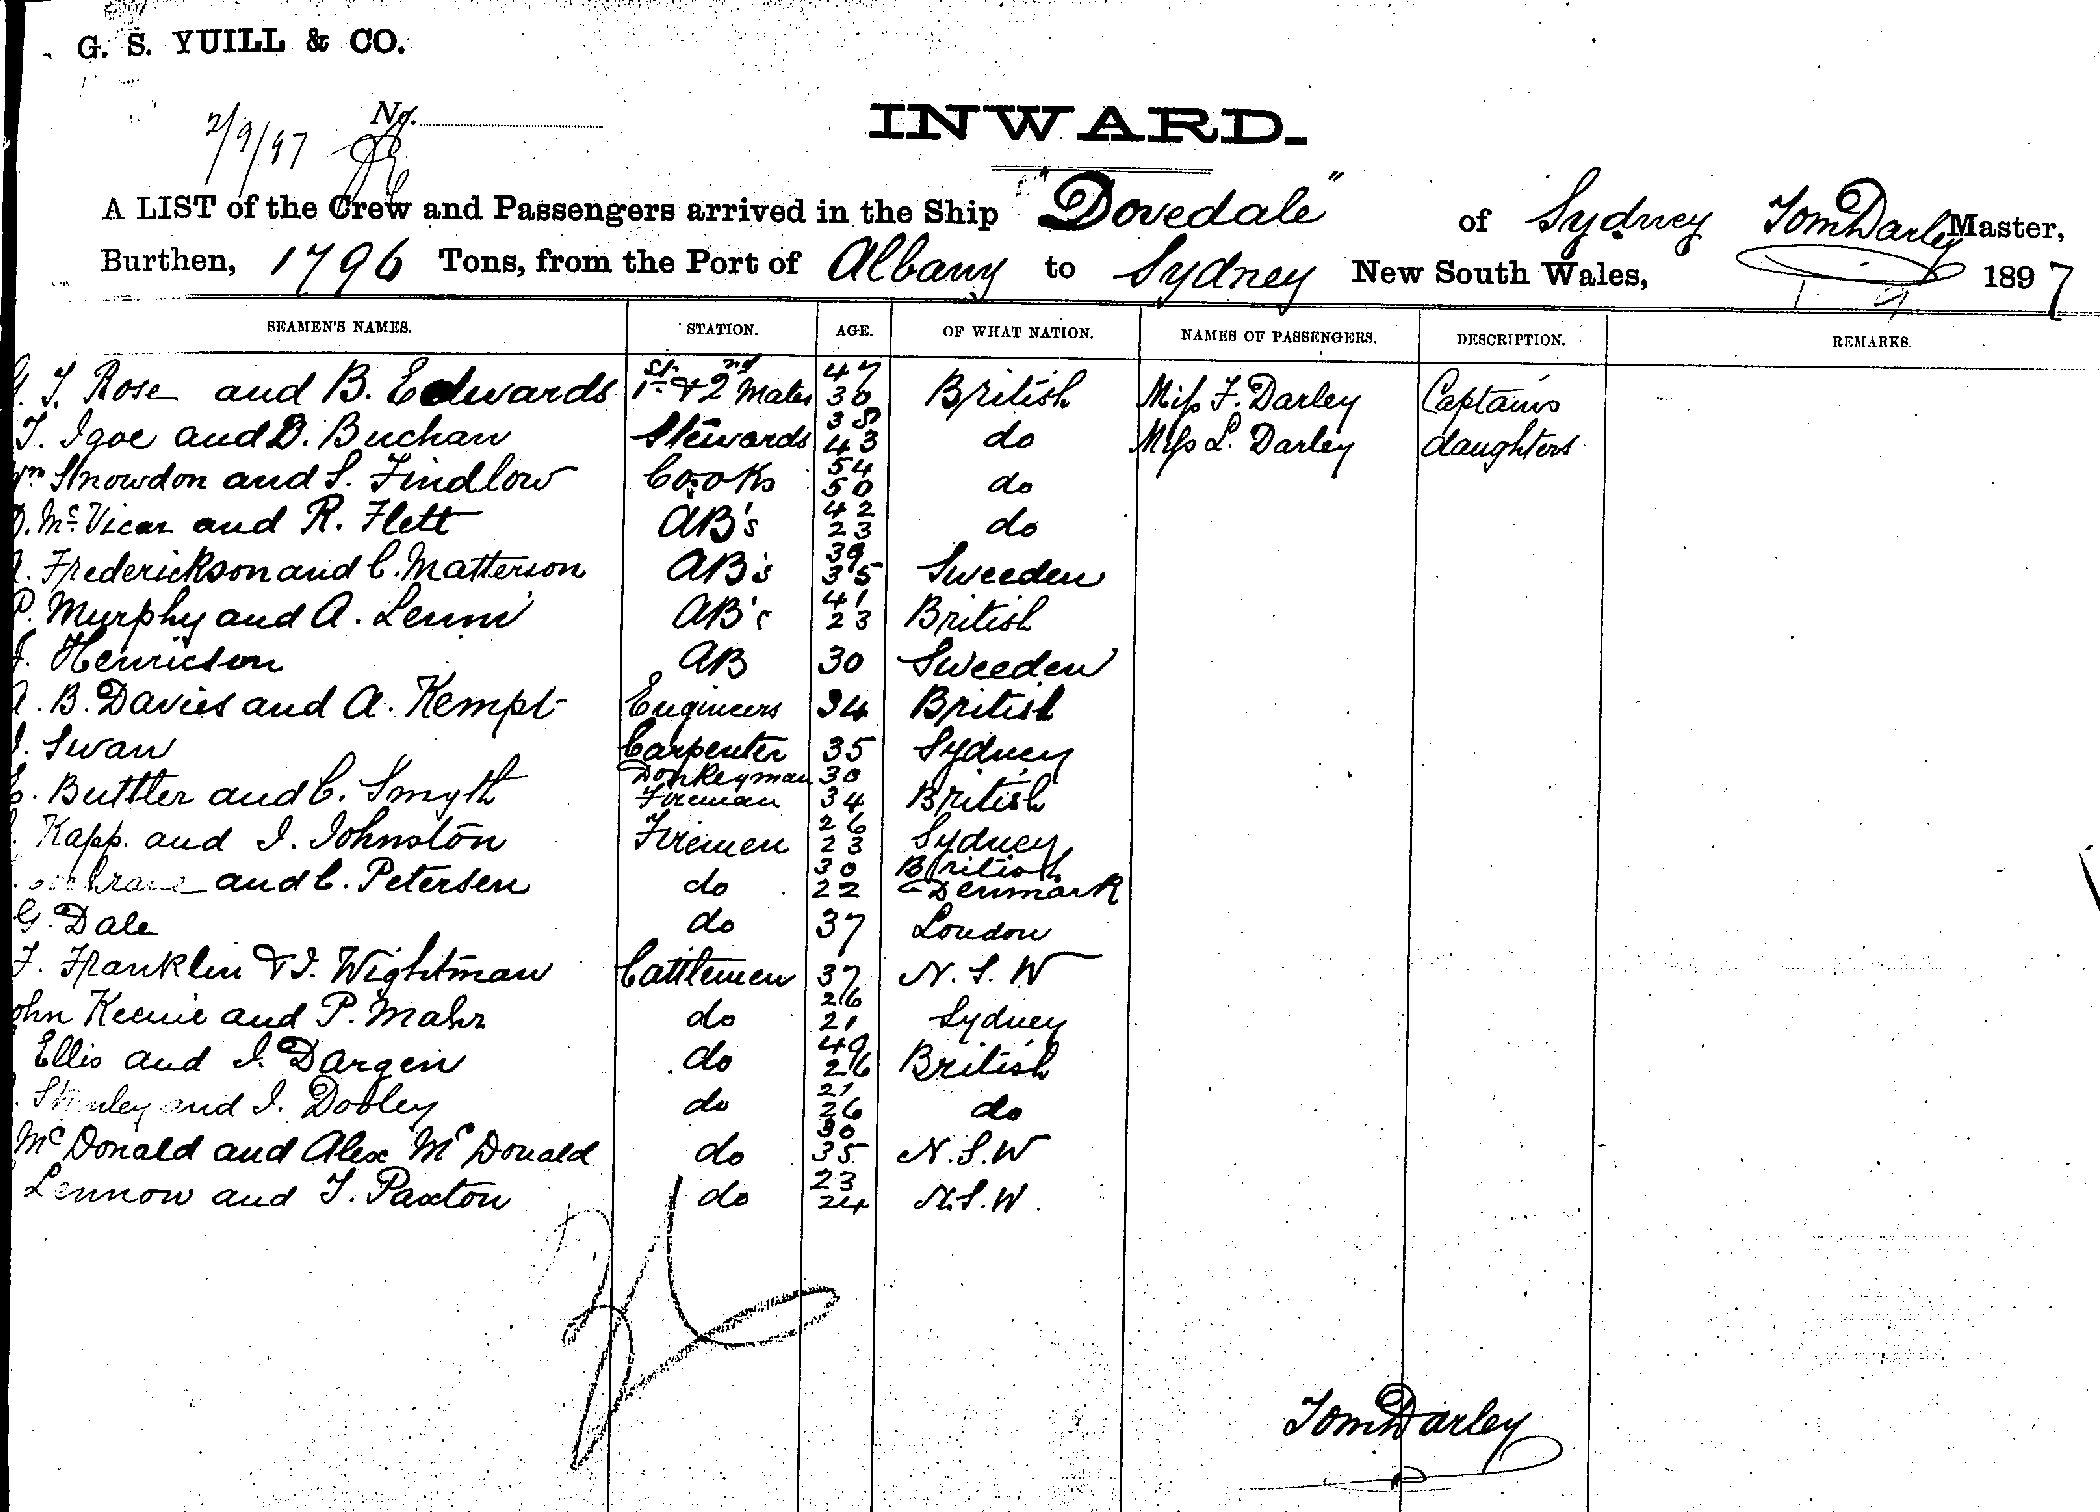 G. S. YUILL & CO.
No.
2/9/97
INWARD.
A LIST of the Crew and Passengers arrived in the Ship "Dovedale" of Sydney Tom Darley Master,
Burthen, 1796 Tons, from the Port of Albany to Sydney New South Wales, 1897
SEAMEN'S NAMES. STATION. AGE. OF WHAT NATION. NAMES OF PASSENGERS. DESCRIPTION. REMARKS.
T. Rose and B. Edwards 1st & 2nd Mates 47 36 British Miss F. Darley Captains
T. Igoe and D. Buchan Stewards 38 43 do Miss L. Darley daughters
Wm Snowdon and S. Findlow Cooks 54 50 do
D. McVicar and R. Flett AB's 42 23 do
A. Frederickson and C. Matterson AB's 39 35 Sweeden
P. Murphy and A. Lenni AB's 41 23 British
J. Henricson AB 30 Sweeden
A. B. Davies and A. Kempt Engineers 34 British
J. Swan Carpenter 35 Sydney
E. Buttler and C. Smyth Donkeyman Fireman 30 34 British
Kapp. and J. Johnston Firemen 26 23 Sydney
and C. Petersen do 30 22 British Denmark
G. Dale do 37 London
F. Franklin & J. Wightman Cattlemen 37 N.S.W
John Keenie and P. Mahr do 26 21 Sydney
Ellis and J. Dargen do 49 26 British
Stanley and J. Dooley do 21 26 do
McDonald and Alex McDonald do 30 35 N.S.W
Lennow and T. Paxton do 23 24 N.S.W.
Tom Darley